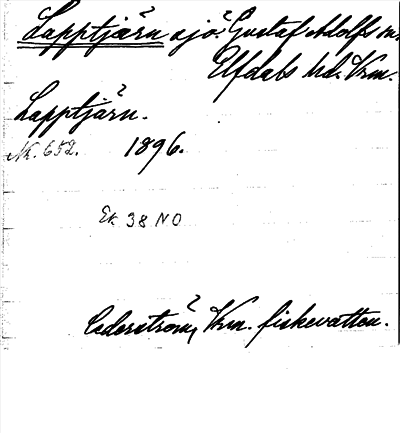 Lapptjärn sjö: Gustaf Adolfs sn.
Elfdals hd. Vrm.
Lapptjärn.
Nr. 652. 1896.
Ek 38 NO
Cederström, Vrm. fiskevatten.